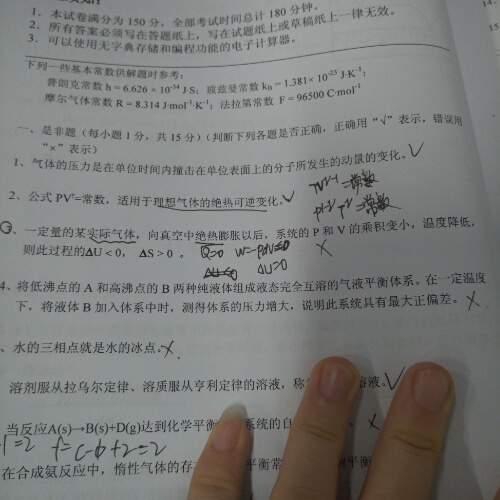 1. 本试卷满分为 150 分，全部考试时间总计 180 分钟。
2. 所有答案必须写在答题纸上，写在试题纸上或草稿纸上一律无效。
3. 可以使用无字典存储和编程功能的电子计算器。
14.
15
下列一些基本常数供解题时参考：
普朗克常数 h = 6.626 × 10⁻³⁴ J·S；玻兹曼常数 k_B = 1.381× 10⁻²³ J·K⁻¹；
摩尔气体常数 R = 8.314 J·mol⁻¹·K⁻¹；法拉第常数 F = 96500 C·mol⁻¹
一、是非题（每小题 1 分，共 15 分）（判断下列各题是否正确，正确用“√”表示，错误用
“×”表示）
1、气体的压力是在单位时间内撞击在单位表面上的分子所发生的动量的变化。√
=常数
2、公式 PVʳ=常数，适用于理想气体的绝热可逆变化。√
=常数
3、一定量的某实际气体，向真空中绝热膨胀以后，系统的 P 和 V 的乘积变小，温度降低，
则此过程的ΔU < 0，ΔS > 0 。 Q=0 ×
ΔU=0
4、将低沸点的 A 和高沸点的 B 两种纯液体组成液态完全互溶的气液平衡体系。在一定温度
下，将液体 B 加入体系中时，测得体系的压力增大，说明此系统具有最大正偏差。×
、水的三相点就是水的冰点。×
溶剂服从拉乌尔定律、溶质服从亨利定律的溶液，称 溶液。√
当反应A(s)→B(s)+D(g)达到化学平衡 系统的自 ×
f=2 f=c-b+2=2
在合成氨反应中，惰性气体的存 平衡常